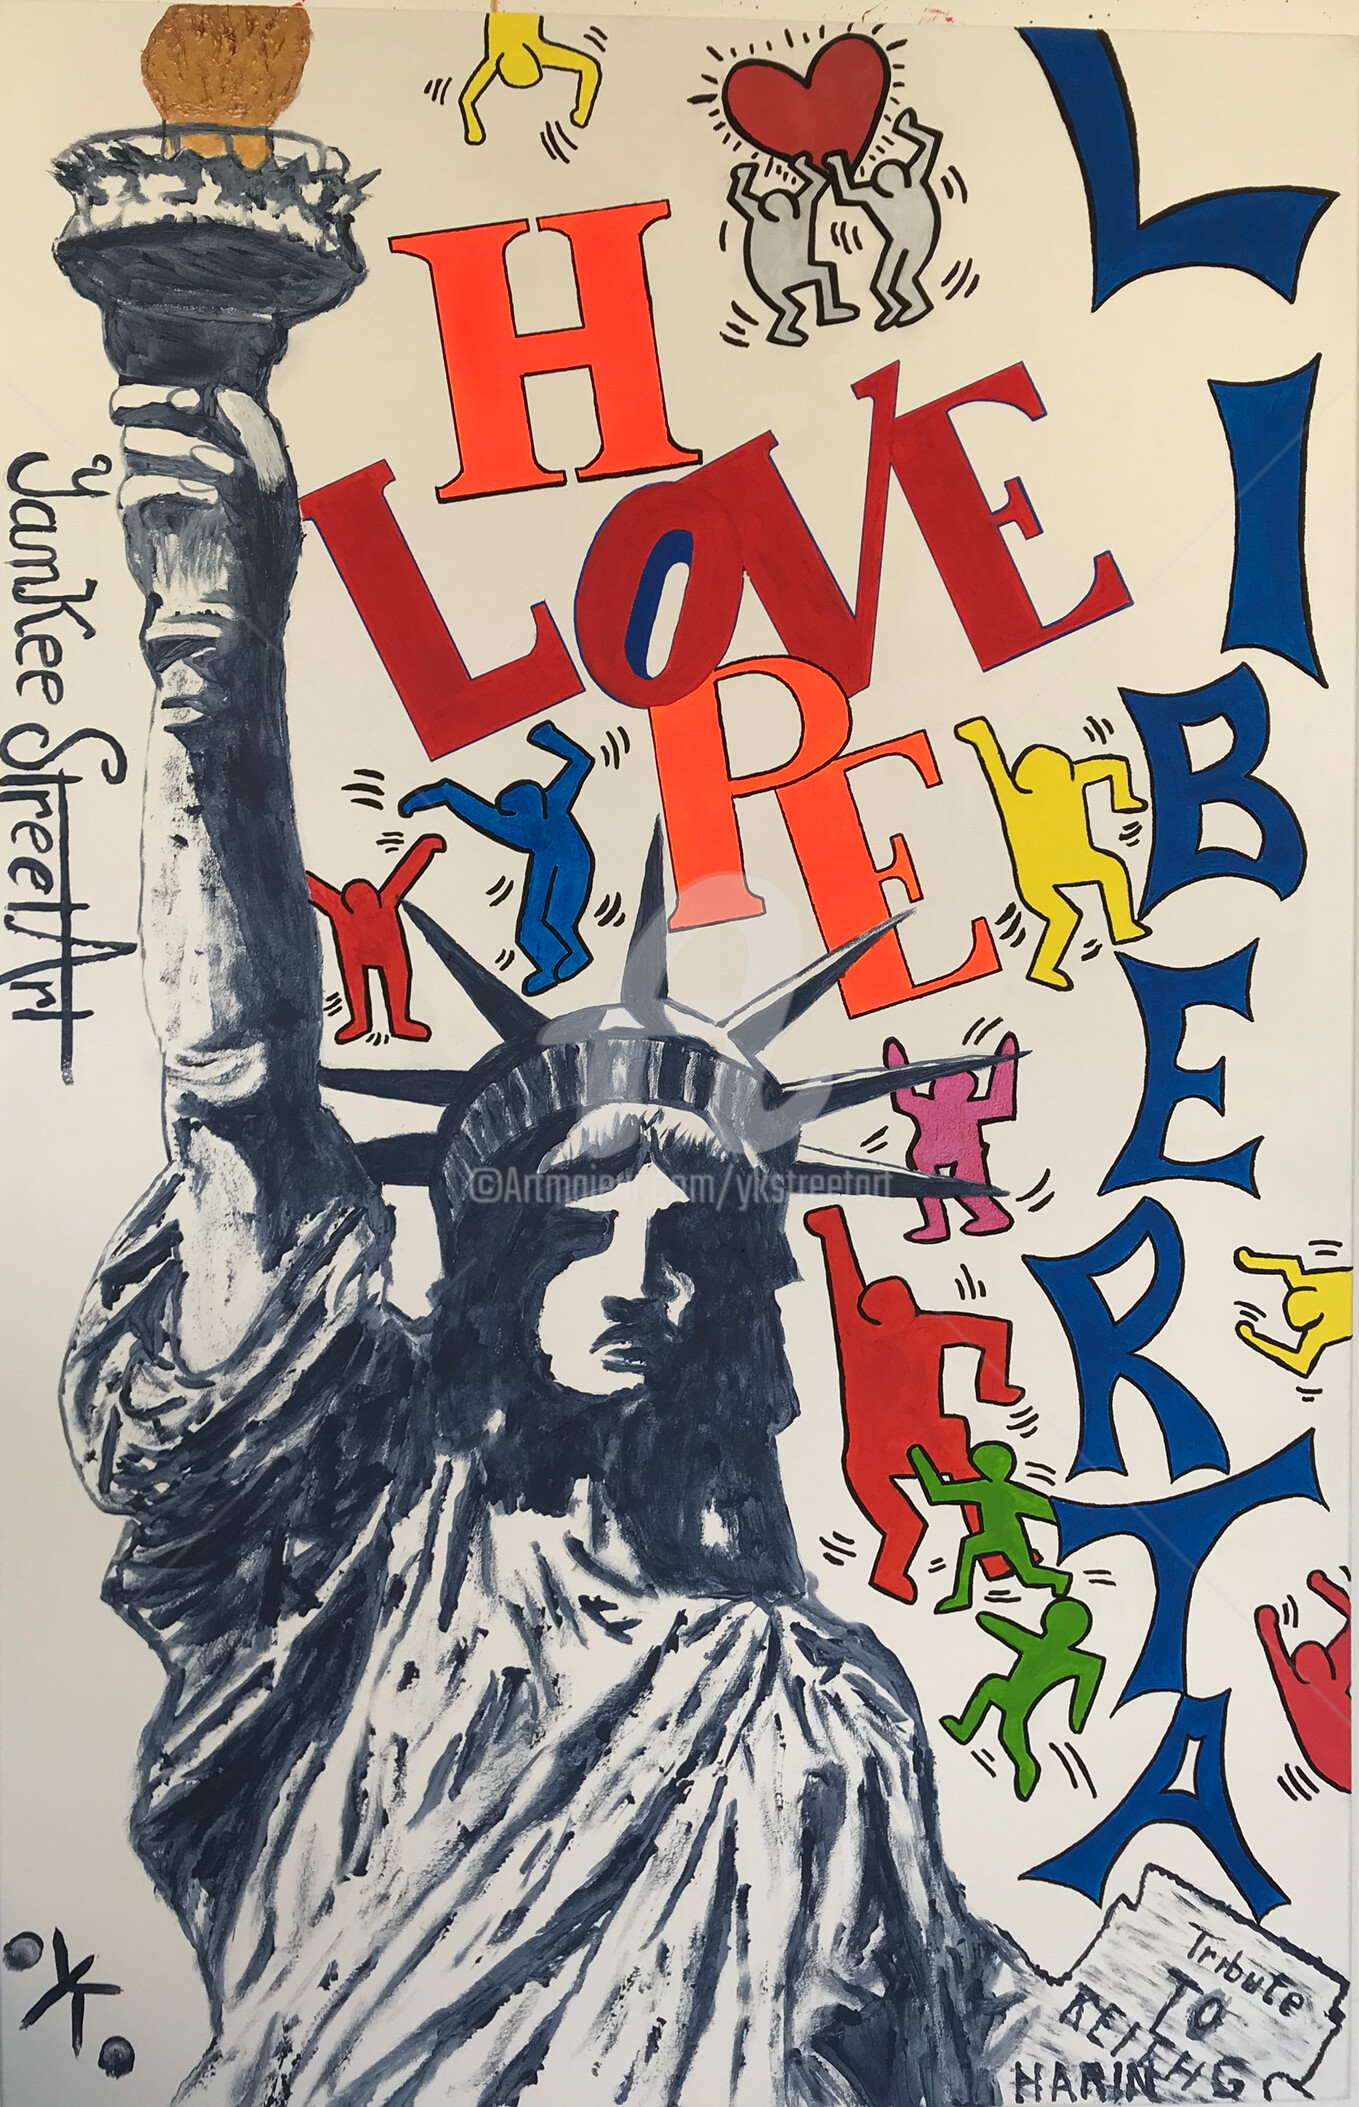 HOPE
LOVE
LIBERTA
Yankee StreetArt
©Artmajeur.com/ykstreetart
Tribute
TO
KEITH
HARING
.K.